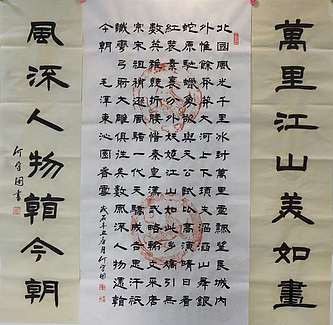 萬里江山美如畫
北國風光千里冰封萬里雪飄望長城內
外惟餘莽莽大河上下頓失滔滔山舞銀
蛇原馳蠟象欲與天公試比高須晴日看
紅裝素裹分外妖嬈江山如此多嬌引無
數英雄競折腰惜秦皇漢武略輸文采唐
宗宋祖稍遜風騷一代天驕成吉思汗只
識彎弓射大雕俱往矣數風流人物還看
今朝 毛澤東沁園春雪
風流人物看今朝